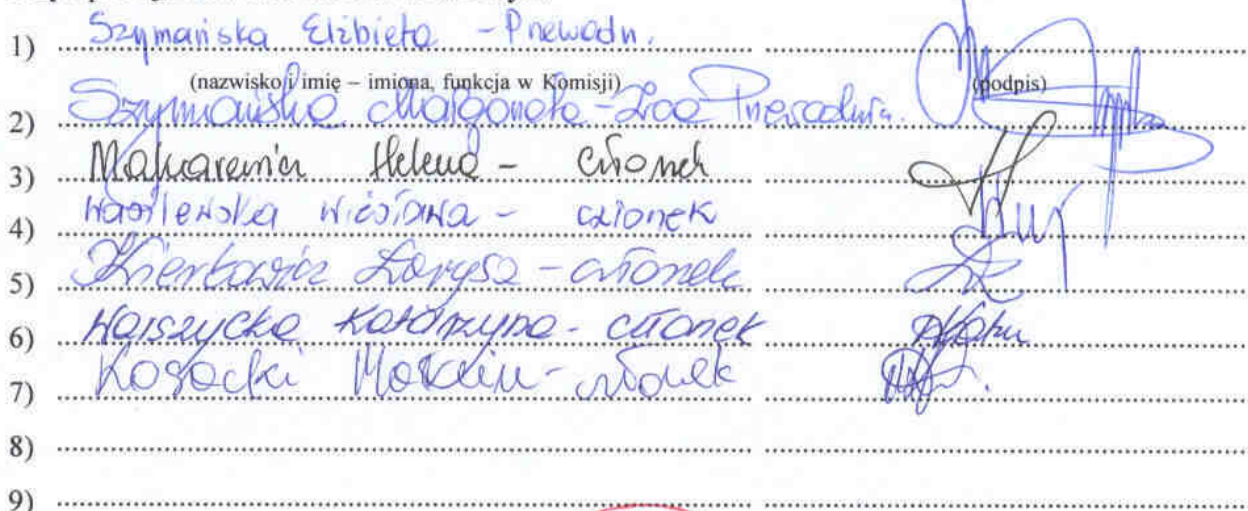 1) Szymańska Elżbieta - Przewodn.
(nazwisko i imię – imiona, funkcja w Komisji) (podpis)
2) Szymańska Małgorzata - Zca Przewodn.
3) Makarewicz Helena - członek
4) Wasilewska Wiesława - członek
5) Larysa - członek
6) Warszycka Katarzyna - członek
7) Kosacki Marcin - członek
8)
9)